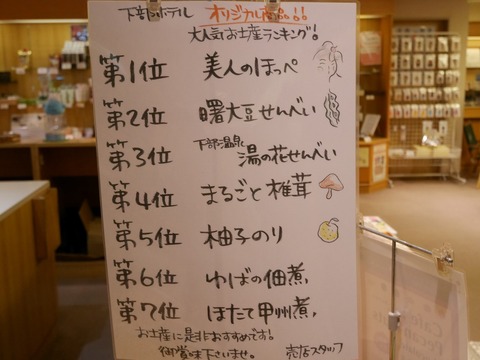 下部ホテル オリジナル商品!!
大人気お土産ランキング!
第1位 美人のほっぺ
第2位 曙大豆せんべい
第3位 下部温泉 湯の花せんべい
第4位 まるごと椎茸
第5位 柚子のり
第6位 ゆばの佃煮
第7位 ほたて甲州煮
お土産に是非おすすめです!
御賞味下さいませ。 売店スタッフ